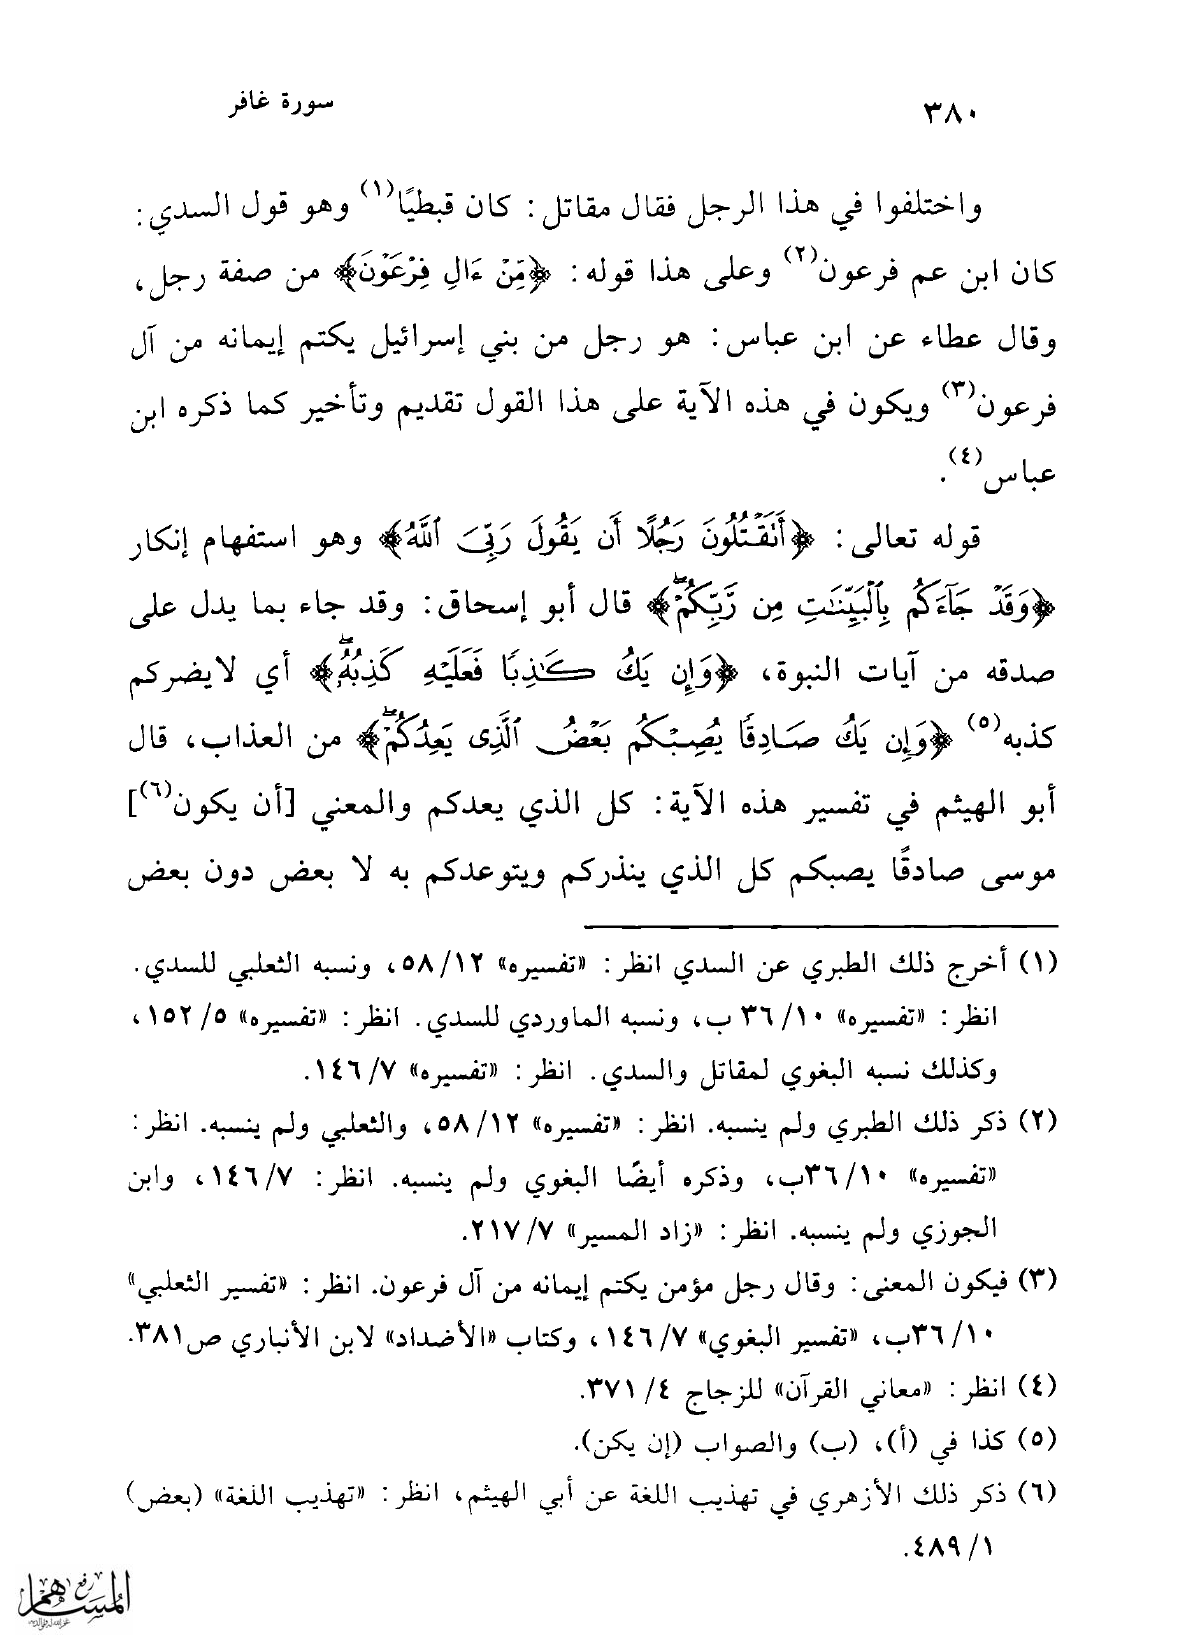 ٣٨٠
سورة غافر
واختلفوا في هذا الرجل فقال مقاتل: كان قبطيًا(١) وهو قول السدي:
كان ابن عم فرعون(٢) وعلى هذا قوله: ﴿مِّنْ ءَالِ فِرْعَوْنَ﴾ من صفة رجل،
وقال عطاء عن ابن عباس: هو رجل من بني إسرائيل يكتم إيمانه من آل
فرعون(٣) ويكون في هذه الآية على هذا القول تقديم وتأخير كما ذكره ابن
عباس(٤).
قوله تعالى: ﴿أَتَقْتُلُونَ رَجُلًا أَن يَقُولَ رَبِّىَ ٱللَّهُ﴾ وهو استفهام إنكار
﴿وَقَدْ جَآءَكُم بِٱلْبَيِّنَٰتِ مِن رَّبِّكُمْۖ﴾ قال أبو إسحاق: وقد جاء بما يدل على
صدقه من آيات النبوة، ﴿وَإِن يَكُ كَٰذِبًا فَعَلَيْهِ كَذِبُهُۥۖ﴾ أي لايضركم
كذبه(٥) ﴿وَإِن يَكُ صَادِقًا يُصِبْكُم بَعْضُ ٱلَّذِى يَعِدُكُمْۖ﴾ من العذاب، قال
أبو الهيثم في تفسير هذه الآية: كل الذي يعدكم والمعني [أن يكون(٦)]
موسى صادقًا يصبكم كل الذي ينذركم ويتوعدكم به لا بعض دون بعض
(١) أخرج ذلك الطبري عن السدي انظر: «تفسيره» ٥٨/١٢، ونسبه الثعلبي للسدي.
انظر: «تفسيره» ٣٦/١٠ ب، ونسبه الماوردي للسدي. انظر: «تفسيره» ١٥٢/٥،
وكذلك نسبه البغوي لمقاتل والسدي. انظر: «تفسيره» ١٤٦/٧.
(٢) ذكر ذلك الطبري ولم ينسبه. انظر: «تفسيره» ٥٨/١٢، والثعلبي ولم ينسبه. انظر:
«تفسيره» ٣٦/١٠ب، وذكره أيضًا البغوي ولم ينسبه. انظر: ١٤٦/٧، وابن
الجوزي ولم ينسبه. انظر: «زاد المسير» ٢١٧/٧.
(٣) فيكون المعنى: وقال رجل مؤمن يكتم إيمانه من آل فرعون. انظر: «تفسير الثعلبي»
٣٦/١٠ب، «تفسير البغوي» ١٤٦/٧، وكتاب «الأضداد» لابن الأنباري ص٣٨١.
(٤) انظر: «معاني القرآن» للزجاج ٣٧١/٤.
(٥) كذا في (أ)، (ب) والصواب (إن يكن).
(٦) ذكر ذلك الأزهري في تهذيب اللغة عن أبي الهيثم، انظر: «تهذيب اللغة» (بعض)
٤٨٩/١.